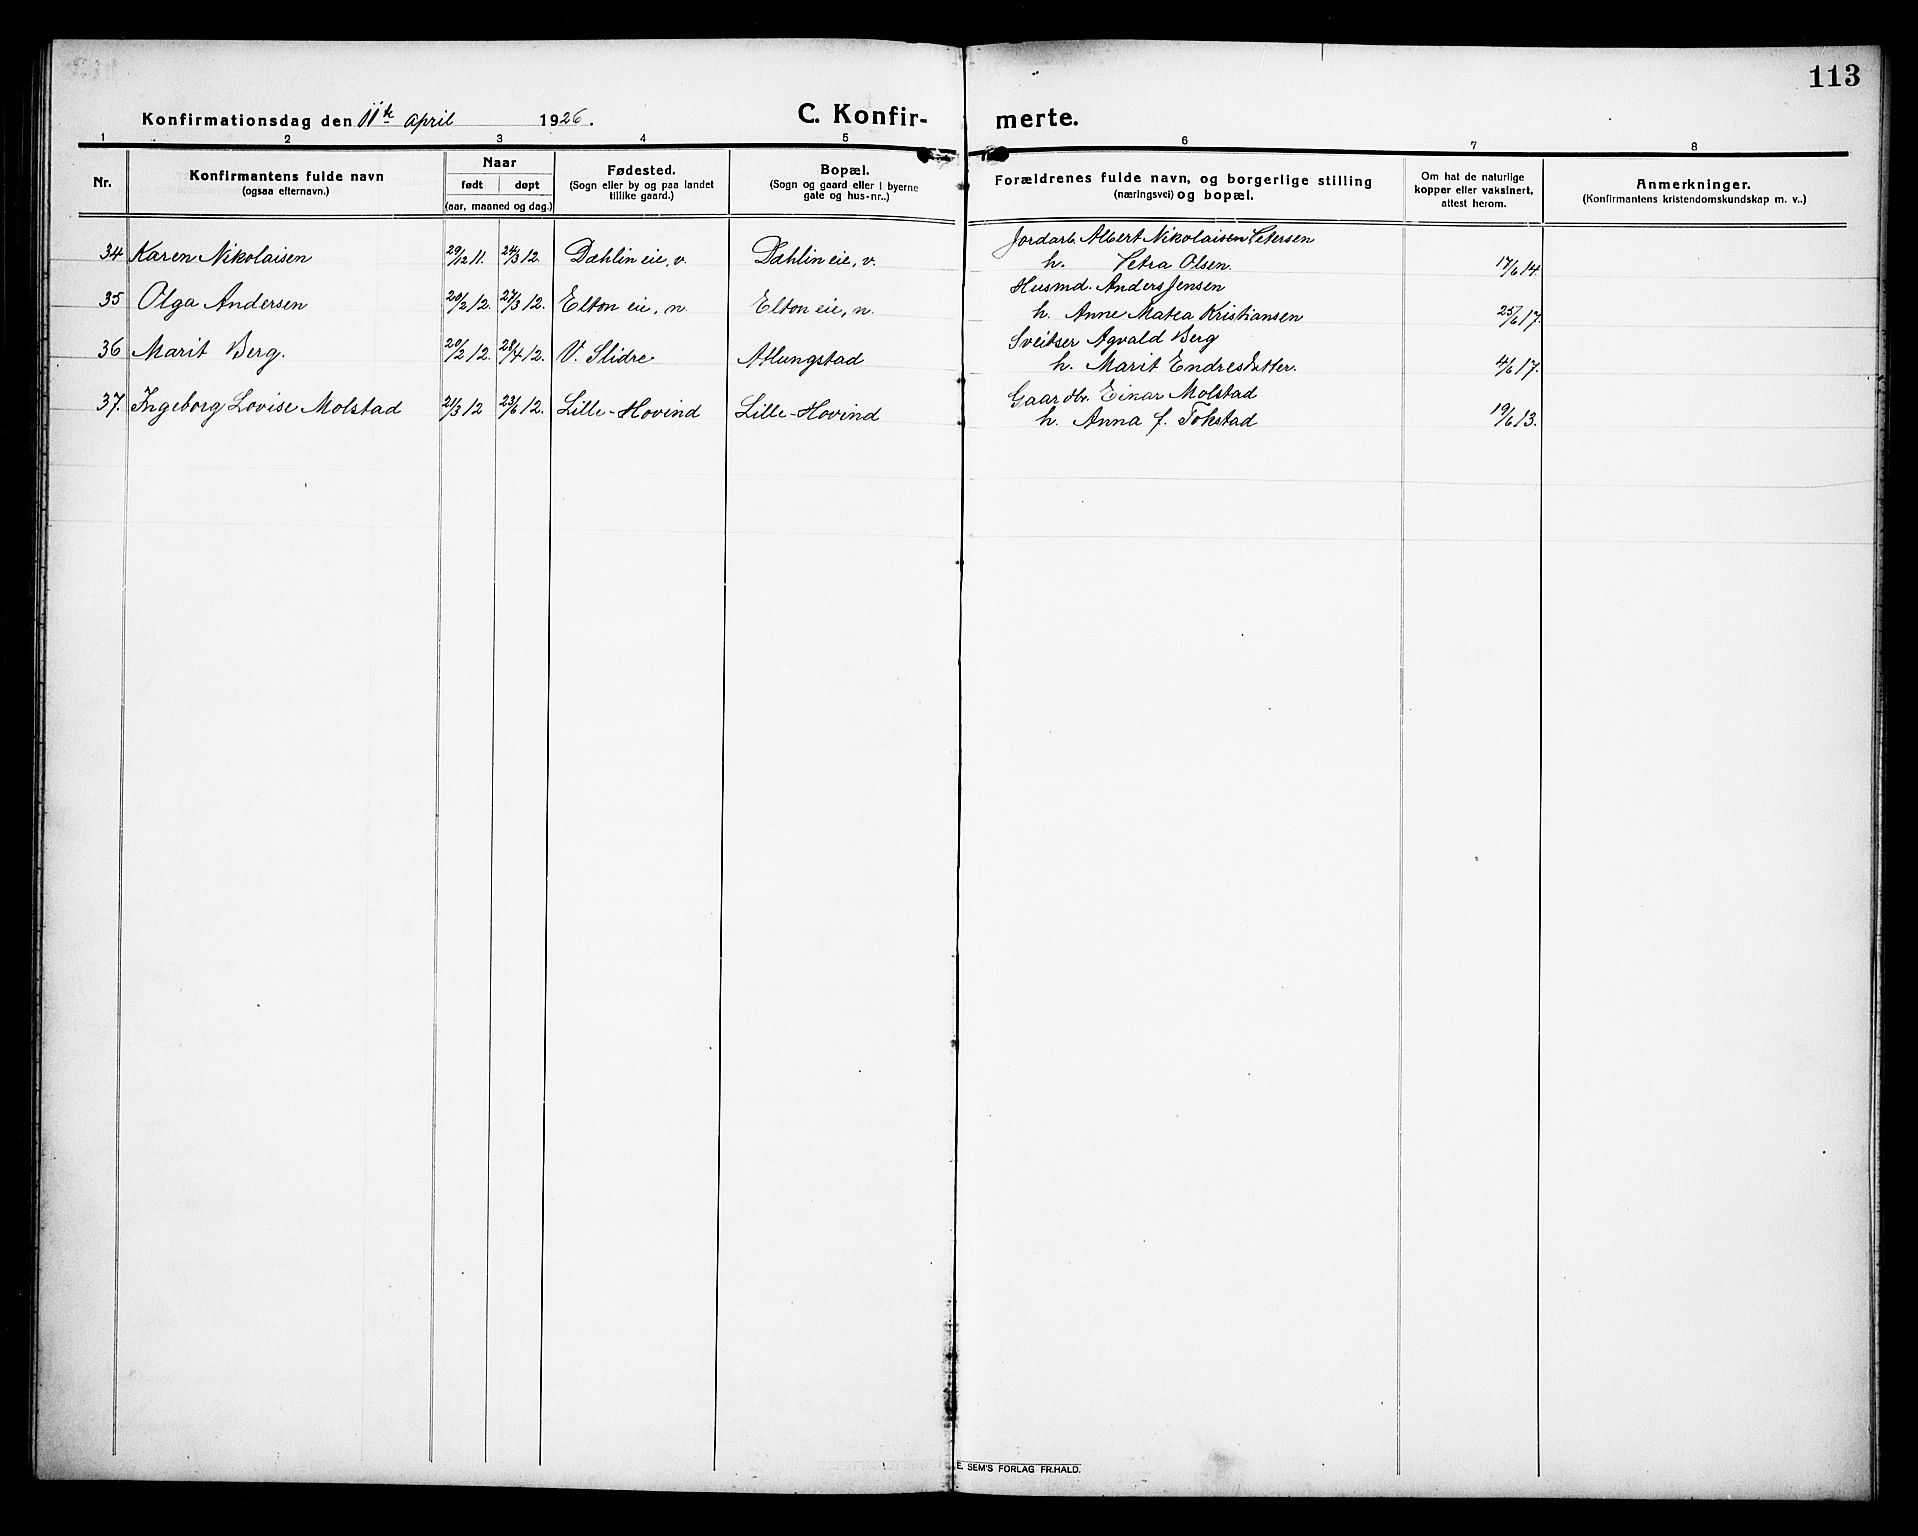 113
Konfirmationsdag den 11te april 1926.
C. Konfir- merte.
1 2 3 4 5 6 7 8
Nr.
Konfirmantens fulde navn
(ogsaa efternavn.)
Naar
født døpt
(aar, maaned og dag.)
Fødested.
(Sogn eller by og paa landet
tillike gaard.)
Bopæl.
(Sogn og gaard eller i byerne
gate og hus-nr..)
Forældrenes fulde navn, og borgerlige stilling
(næringsvei) og bopæl.
Om hat de naturlige
kopper eller vaksinert,
attest herom.
Anmerkninger.
(Konfirmantens kristendomskundskap m. v..)
34 Karen Nikolaisen 29/12 11. 24/3 12. Dæhlin eie, v. Dæhlin eie, v. Jordarb. Albert Nikolaisen Petersen
h. Petra Olsen. 17/6 14.
35 Olga Andersen 20/2 12. 27/3 12. Elton eie, n. Elton eie, n. Husmd. Anders Jensen
h. Anne Matea Kristiansen 25/6 17.
36 Marit Berg. 20/2 12. 28/4 12. V. Slidre Atlungstad Sveitser Agvald Berg
h. Marit Endresdatter. 4/6 17.
37. Ingeborg Lovise Molstad 21/3 12 23/6 12. Lille-Hovind Lille-Hovind Gaardbr. Einar Molstad
h. Anna f. Tokstad 19/6 13.
E. SEM'S FORLAG FR.HALD.